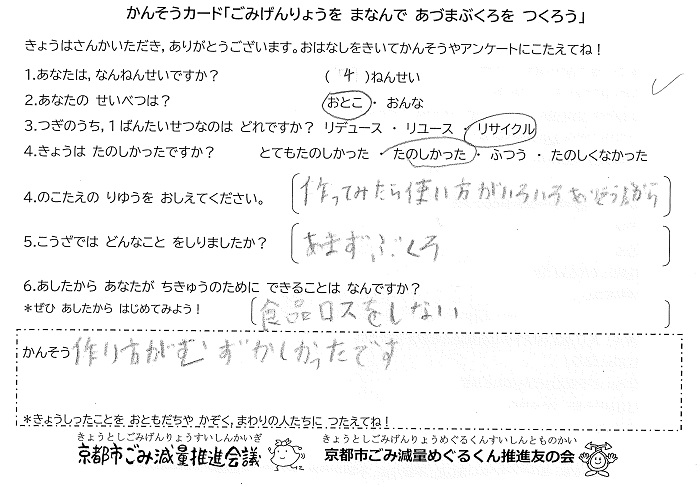 かんそうカード「ごみげんりょうを まなんで あづまぶくろを つくろう」
きょうはさんかいただき,ありがとうございます。おはなしをきいてかんそうやアンケートにこたえてね！
1.あなたは,なんねんせいですか？ （ 4 ）ねんせい
2.あなたの せいべつは？ おとこ ・ おんな
3.つぎのうち,1ばんたいせつなのは どれですか？ リデュース ・ リユース ・ リサイクル
4.きょうは たのしかったですか？ とてもたのしかった ・ たのしかった ・ ふつう ・ たのしくなかった
4.のこたえの りゆうを おしえてください。 作ってみたら使い方がいろいろ から
5.こうざでは どんなこと をしりましたか？ あまずぶくろ
6.あしたから あなたが ちきゅうのために できることは なんですか？
*ぜひ あしたから はじめてみよう！ 食品ロスをしない
かんそう 作り方がむずかしかったです
*きょうしったことを おともだちや かぞく,まわりの人たちに つたえてね！
きょうとしごみげんりょうすいしんかいぎ きょうとしごみげんりょうめぐるくんすいしんとものかい
京都市ごみ減量推進会議 京都市ごみ減量めぐるくん推進友の会